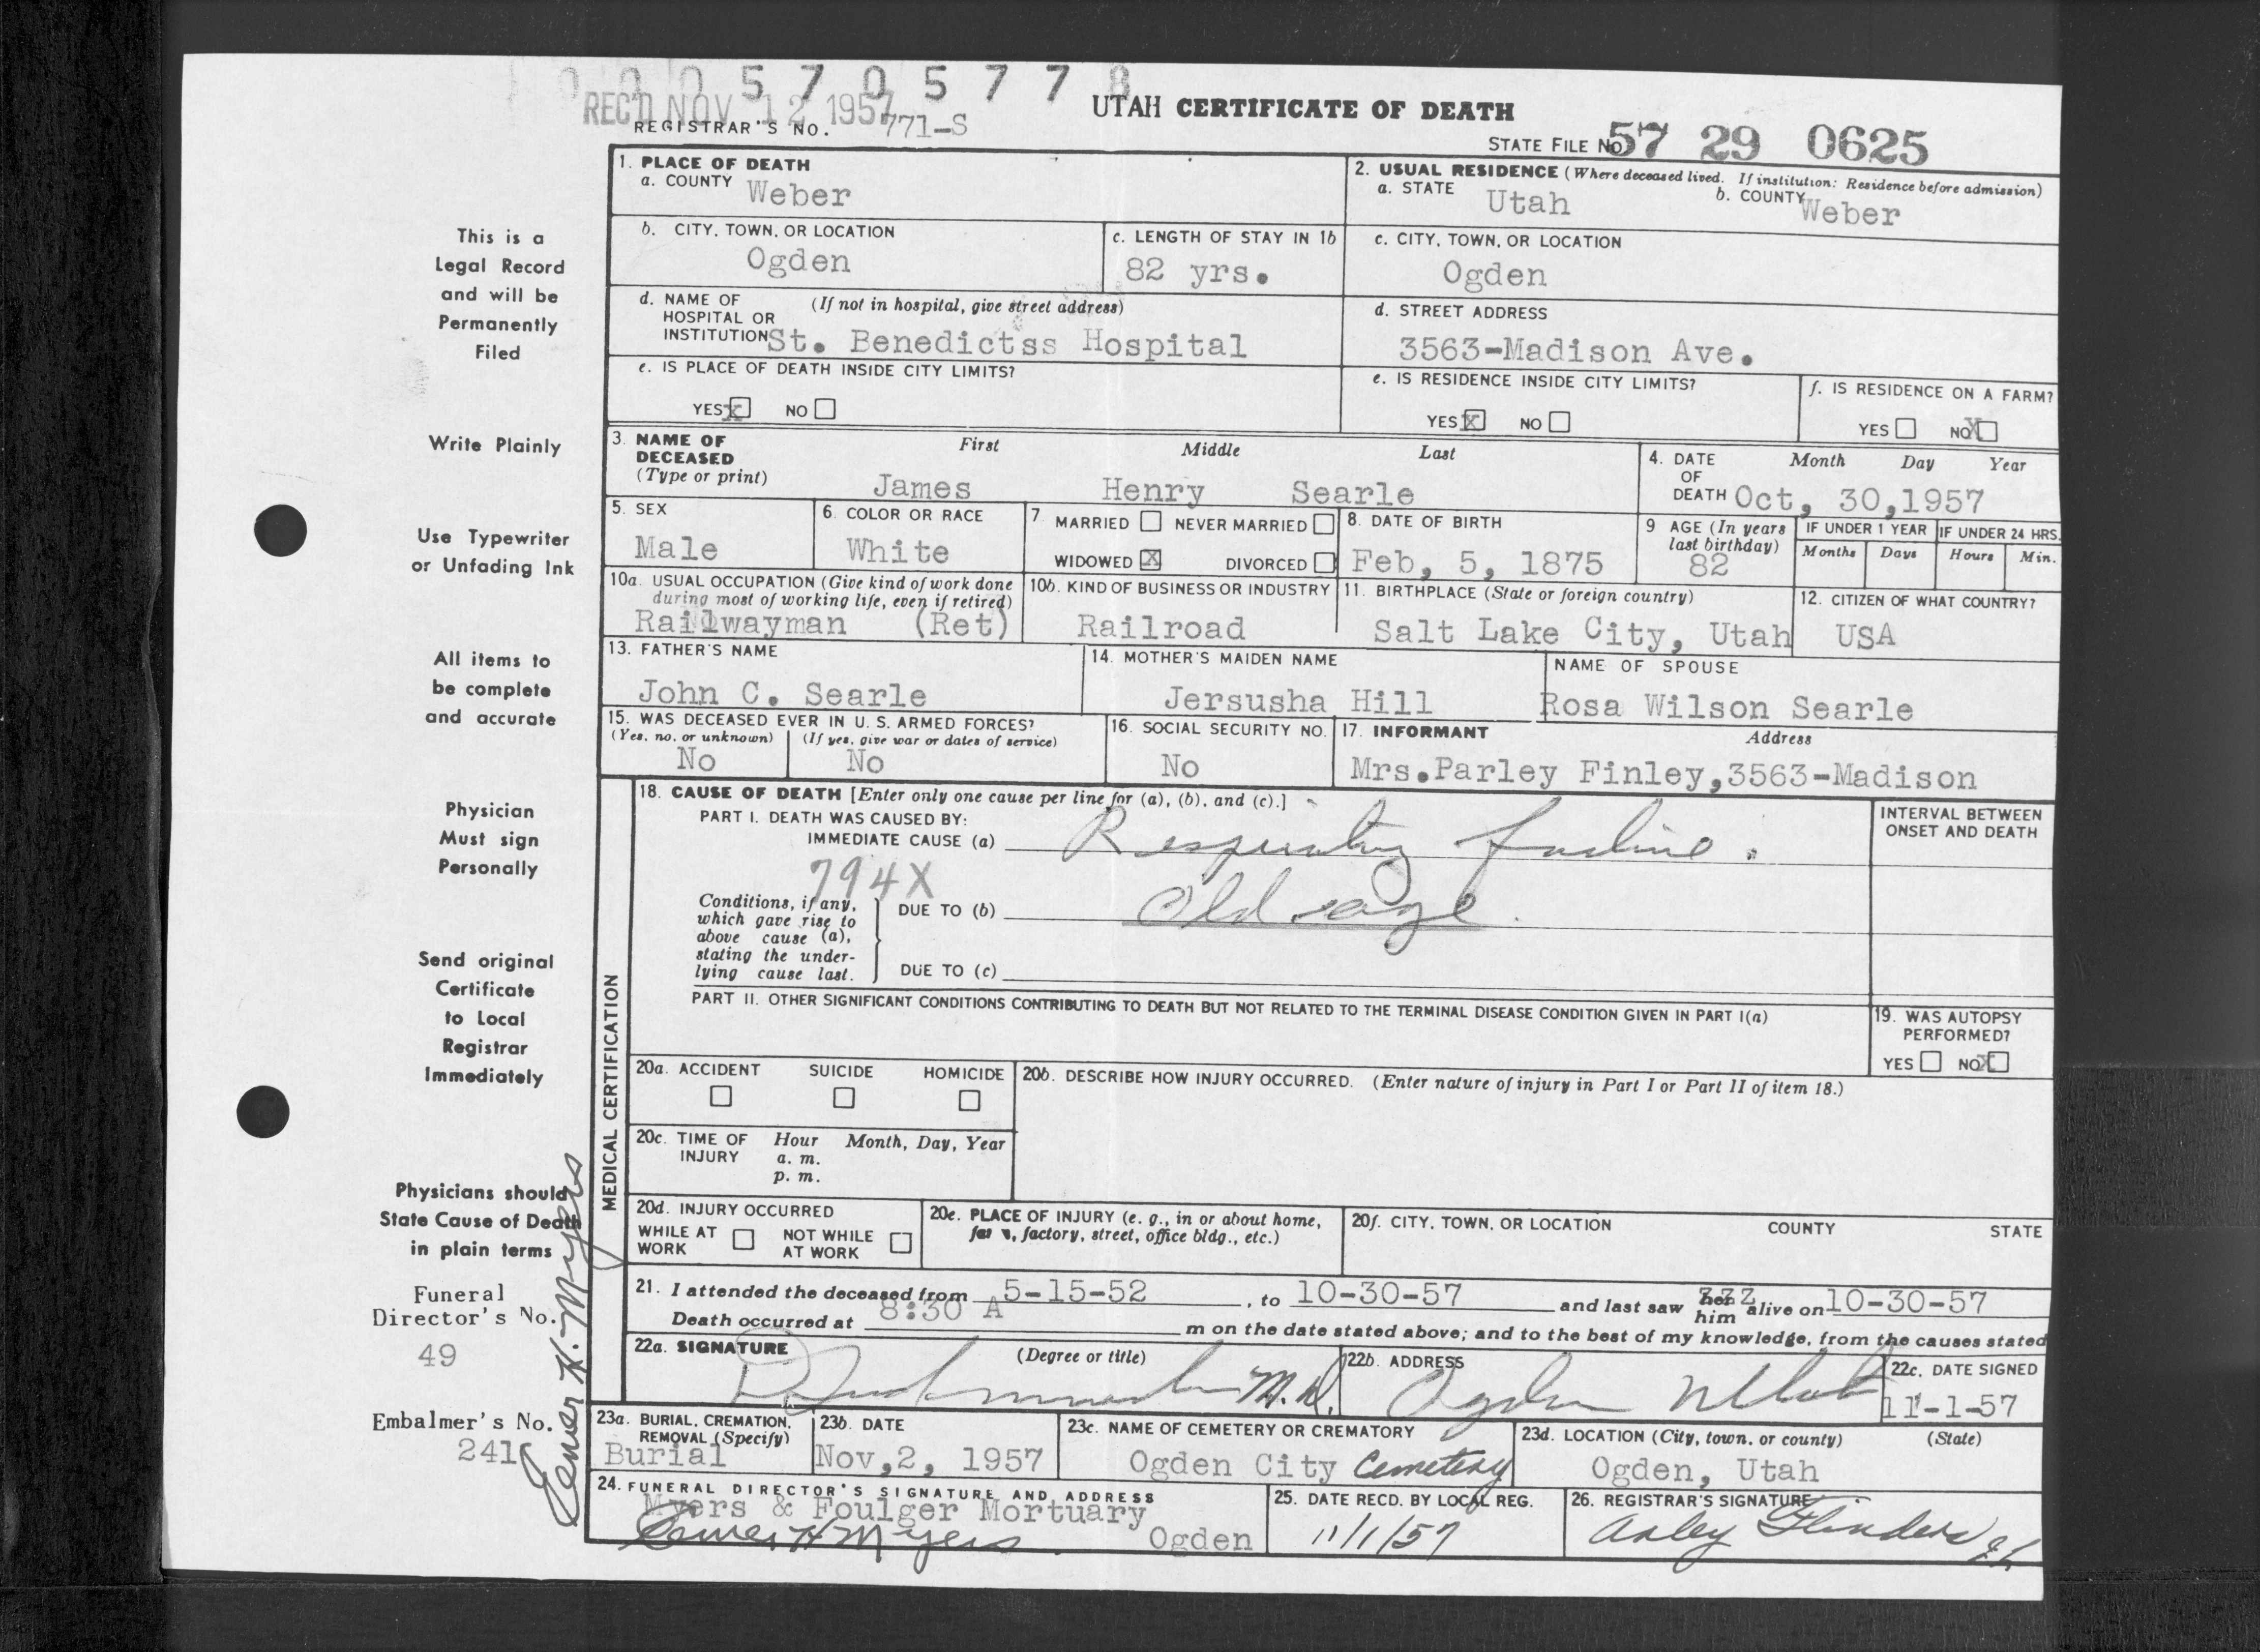 0 0 0 5 7 0 5 7 7 8
REC'D NOV 12 1957
UTAH CERTIFICATE OF DEATH
REGISTRAR'S NO. 771-S
STATE FILE NO. 57 29 0625
This is a
Legal Record
and will be
Permanently
Filed
Write Plainly
Use Typewriter
or Unfading Ink
All items to
be complete
and accurate
Physician
Must sign
Personally
Send original
Certificate
to Local
Registrar
Immediately
Physicians should
State Cause of Death
in plain terms
Funeral
Director's No.
49
Embalmer's No.
241
Elmer H. Myers
1. PLACE OF DEATH
a. COUNTY Weber
2. USUAL RESIDENCE (Where deceased lived. If institution: Residence before admission)
a. STATE Utah b. COUNTY Weber
b. CITY, TOWN, OR LOCATION
Ogden
c. LENGTH OF STAY IN 1b
82 yrs.
c. CITY, TOWN, OR LOCATION
Ogden
d. NAME OF (If not in hospital, give street address)
HOSPITAL OR
INSTITUTION St. Benedictss Hospital
d. STREET ADDRESS
3563-Madison Ave.
e. IS PLACE OF DEATH INSIDE CITY LIMITS?
YES X NO
e. IS RESIDENCE INSIDE CITY LIMITS?
YES X NO
f. IS RESIDENCE ON A FARM?
YES NO X
3. NAME OF DECEASED (Type or print)
First Middle Last
James Henry Searle
4. DATE OF DEATH
Month Day Year
Oct, 30,1957
5. SEX
Male
6. COLOR OR RACE
White
7. MARRIED NEVER MARRIED
WIDOWED X DIVORCED
8. DATE OF BIRTH
Feb, 5, 1875
9 AGE (In years
last birthday)
82
IF UNDER 1 YEAR
Months Days
IF UNDER 24 HRS.
Hours Min.
10a. USUAL OCCUPATION (Give kind of work done
during most of working life, even if retired)
Railwayman (Ret)
10b. KIND OF BUSINESS OR INDUSTRY
Railroad
11. BIRTHPLACE (State or foreign country)
Salt Lake City, Utah
12. CITIZEN OF WHAT COUNTRY?
USA
13. FATHER'S NAME
John C. Searle
14. MOTHER'S MAIDEN NAME
Jersusha Hill
NAME OF SPOUSE
Rosa Wilson Searle
15. WAS DECEASED EVER IN U. S. ARMED FORCES?
(Yes, no, or unknown) (If yes, give war or dates of service)
No No
16. SOCIAL SECURITY NO.
No
17. INFORMANT Address
Mrs.Parley Finley,3563-Madison
MEDICAL CERTIFICATION
18. CAUSE OF DEATH [Enter only one cause per line for (a), (b), and (c).]
PART I. DEATH WAS CAUSED BY:
IMMEDIATE CAUSE (a) Respiratory failure.
INTERVAL BETWEEN
ONSET AND DEATH
794X
Conditions, if any,
which gave rise to
above cause (a),
stating the under-
lying cause last.
DUE TO (b) Old age.
DUE TO (c)
PART II. OTHER SIGNIFICANT CONDITIONS CONTRIBUTING TO DEATH BUT NOT RELATED TO THE TERMINAL DISEASE CONDITION GIVEN IN PART I(a)
19. WAS AUTOPSY
PERFORMED?
YES NO X
20a. ACCIDENT SUICIDE HOMICIDE
20b. DESCRIBE HOW INJURY OCCURRED. (Enter nature of injury in Part I or Part II of item 18.)
20c. TIME OF INJURY
Hour Month, Day, Year
a. m.
p. m.
20d. INJURY OCCURRED
WHILE AT WORK NOT WHILE AT WORK
20e. PLACE OF INJURY (e. g., in or about home,
farm, factory, street, office bldg., etc.)
20f. CITY, TOWN, OR LOCATION COUNTY STATE
21. I attended the deceased from 5-15-52, to 10-30-57 and last saw her him alive on 10-30-57
Death occurred at 8:30 A m on the date stated above; and to the best of my knowledge, from the causes stated
22a. SIGNATURE (Degree or title)
M.D.
22b. ADDRESS
Ogden Utah
22c. DATE SIGNED
11-1-57
23a. BURIAL, CREMATION,
REMOVAL (Specify)
Burial
23b. DATE
Nov,2, 1957
23c. NAME OF CEMETERY OR CREMATORY
Ogden City Cemetery
23d. LOCATION (City, town, or county) (State)
Ogden, Utah
24. FUNERAL DIRECTOR'S SIGNATURE AND ADDRESS
Myers & Foulger Mortuary
Elmer H Myers Ogden
25. DATE RECD. BY LOCAL REG.
11/1/57
26. REGISTRAR'S SIGNATURE
Arley Flinders